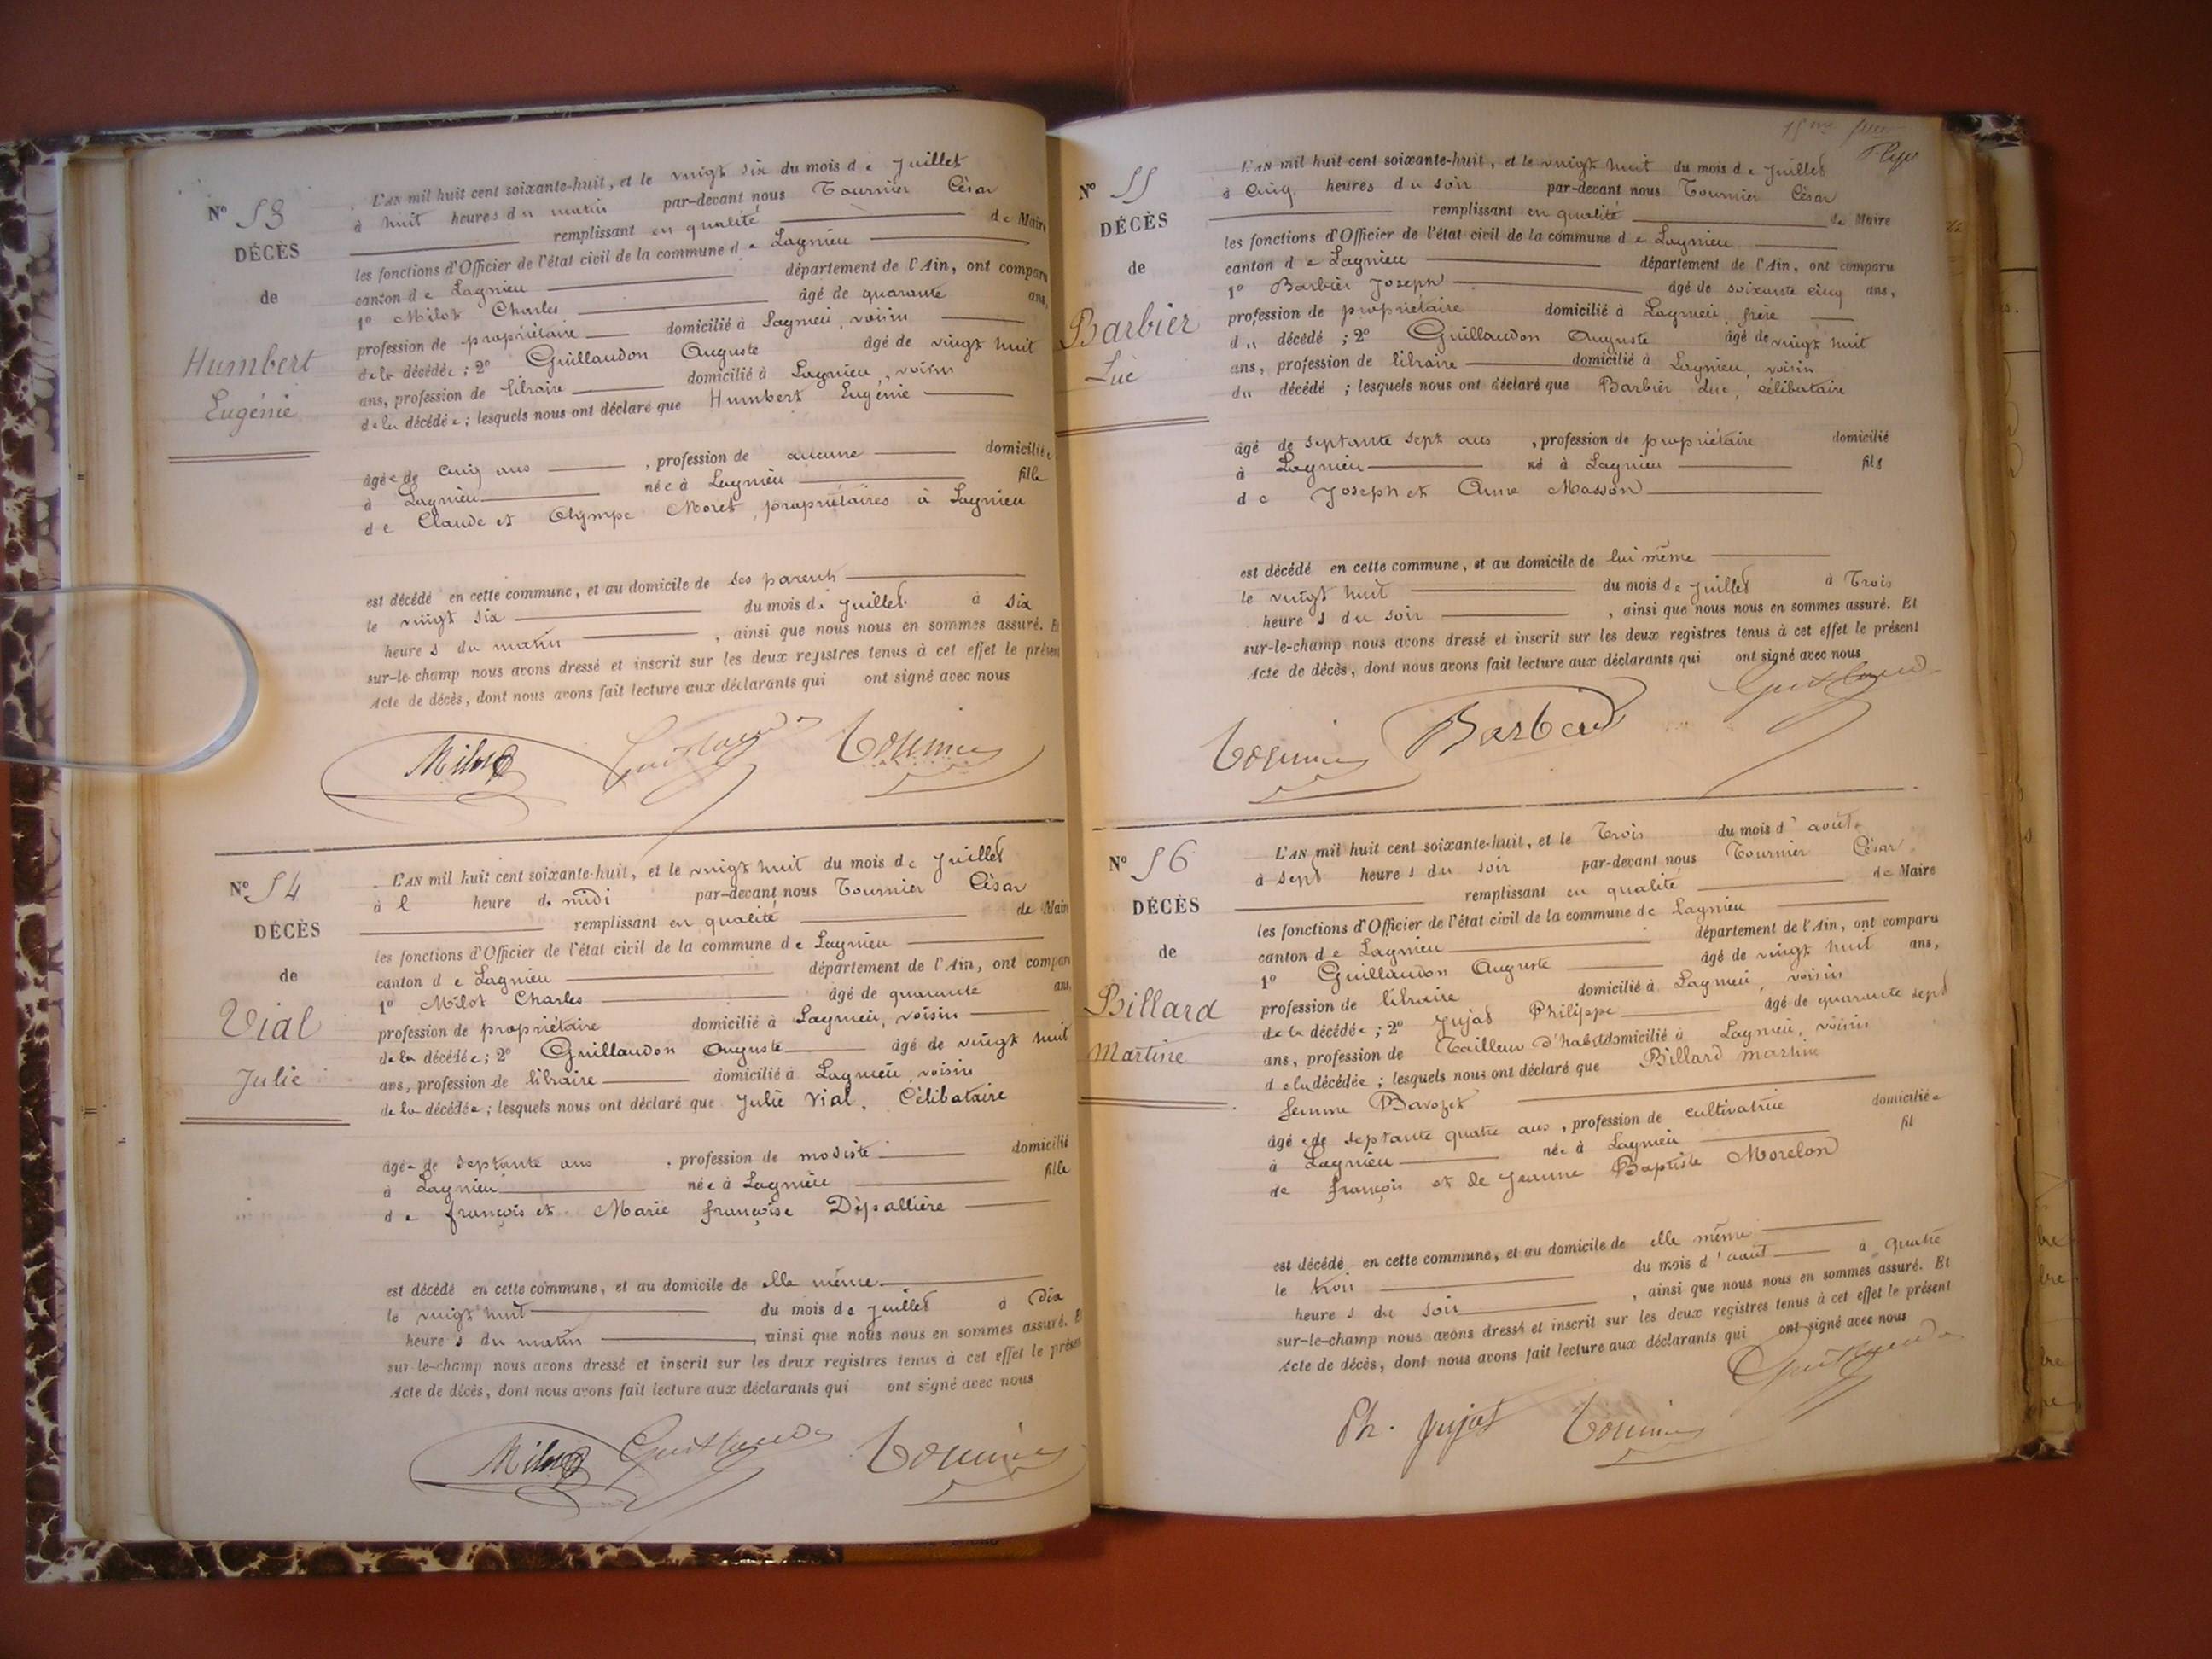 N° 53
DÉCÈS
de
Humbert
Eugénie
L'AN mil huit cent soixante-huit, et le vingt six du mois de Juillet
à huit heures du matin par-devant nous Tournier César
remplissant en qualité de Maire
les fonctions d'Officier de l'état civil de la commune de Lagnieu
canton de Lagnieu département de l'Ain, ont comparu
1° Milot Charles âgé de quarante ans,
profession de propriétaire domicilié à Lagnieu, voisin
de la décédée ; 2° Guillaudon Auguste âgé de vingt huit
ans, profession de libraire domicilié à Lagnieu, voisin
de la décédée ; lesquels nous ont déclaré que Humbert Eugénie
âgée de cinq ans , profession de aucune domiciliée
à Lagnieu née à Lagnieu fille
de Claude et Olympe Moret, propriétaires à Lagnieu
est décédé en cette commune, et au domicile de ses parents
le vingt six du mois de Juillet à six
heures du matin , ainsi que nous nous en sommes assuré. Et
sur-le-champ nous avons dressé et inscrit sur les deux registres tenus à cet effet le présent
Acte de décès, dont nous avons fait lecture aux déclarants qui ont signé avec nous
Milot Guillaudon Tournier
N° 54
DÉCÈS
de
Vial
Julie
L'AN mil huit cent soixante-huit, et le vingt huit du mois de Juillet
à 1 heure de midi par-devant nous Tournier César
remplissant en qualité de Maire
les fonctions d'Officier de l'état civil de la commune de Lagnieu
canton de Lagnieu département de l'Ain, ont comparu
1° Milot Charles âgé de quarante ans,
profession de propriétaire domicilié à Lagnieu, voisin
de la décédée ; 2° Guillaudon Auguste âgé de vingt huit
ans, profession de libraire domicilié à Lagnieu, voisin
de la décédée ; lesquels nous ont déclaré que Julie Vial, Célibataire
âgée de septante ans , profession de modiste domicilié
à Lagnieu née à Lagnieu fille
de françois et Marie françoise Dépallière
est décédé en cette commune, et au domicile de elle même
le vingt huit du mois de Juillet à Dix
heures du matin , ainsi que nous nous en sommes assuré. Et
sur-le-champ nous avons dressé et inscrit sur les deux registres tenus à cet effet le présent
Acte de décès, dont nous avons fait lecture aux déclarants qui ont signé avec nous
Milot Guillaudon Tournier
15me
N° 55
DÉCÈS
de
Barbier
Luc
L'AN mil huit cent soixante-huit, et le vingt huit du mois de Juillet
à Cinq heures du soir par-devant nous Tournier César
remplissant en qualité de Maire
les fonctions d'Officier de l'état civil de la commune de Lagnieu
canton de Lagnieu département de l'Ain, ont comparu
1° Barbier Joseph âgé de soixante cinq ans,
profession de propriétaire domicilié à Lagnieu, frère
du décédé ; 2° Guillaudon Auguste âgé de vingt huit
ans, profession de libraire domicilié à Lagnieu, voisin
du décédé ; lesquels nous ont déclaré que Barbier Luc, célibataire
âgé de septante sept ans , profession de propriétaire domicilié
à Lagnieu né à Lagnieu fils
de Joseph et Anne Masson
est décédé en cette commune, et au domicile de lui même
le vingt huit du mois de Juillet à Trois
heures du soir , ainsi que nous nous en sommes assuré. Et
sur-le-champ nous avons dressé et inscrit sur les deux registres tenus à cet effet le présent
Acte de décès, dont nous avons fait lecture aux déclarants qui ont signé avec nous
Tournier Guillaudon
N° 56
DÉCÈS
de
Billard
Martine
L'AN mil huit cent soixante-huit, et le Trois du mois d'août
à sept heures du soir par-devant nous Tournier César
remplissant en qualité de Maire
les fonctions d'Officier de l'état civil de la commune de Lagnieu
canton de Lagnieu département de l'Ain, ont comparu
1° Guillaudon Auguste âgé de vingt huit ans,
profession de libraire domicilié à Lagnieu, voisin
de la décédée ; 2° Jujat Philippe âgé de quarante sept
ans, profession de Tailleur d'habits domicilié à Lagnieu, voisin
de la décédée ; lesquels nous ont déclaré que Billard martine
femme Bavozet
âgée de septante quatre ans , profession de cultivatrice domiciliée
à Lagnieu née à Lagnieu fil
de françois et de Jeanne Baptiste Morelon
est décédé en cette commune, et au domicile de elle même
le trois du mois d'aout à quatre
heures du soir , ainsi que nous nous en sommes assuré. Et
sur-le-champ nous avons dressé et inscrit sur les deux registres tenus à cet effet le présent
Acte de décès, dont nous avons fait lecture aux déclarants qui ont signé avec nous
Ph. Jujat Tournier Guillaudon